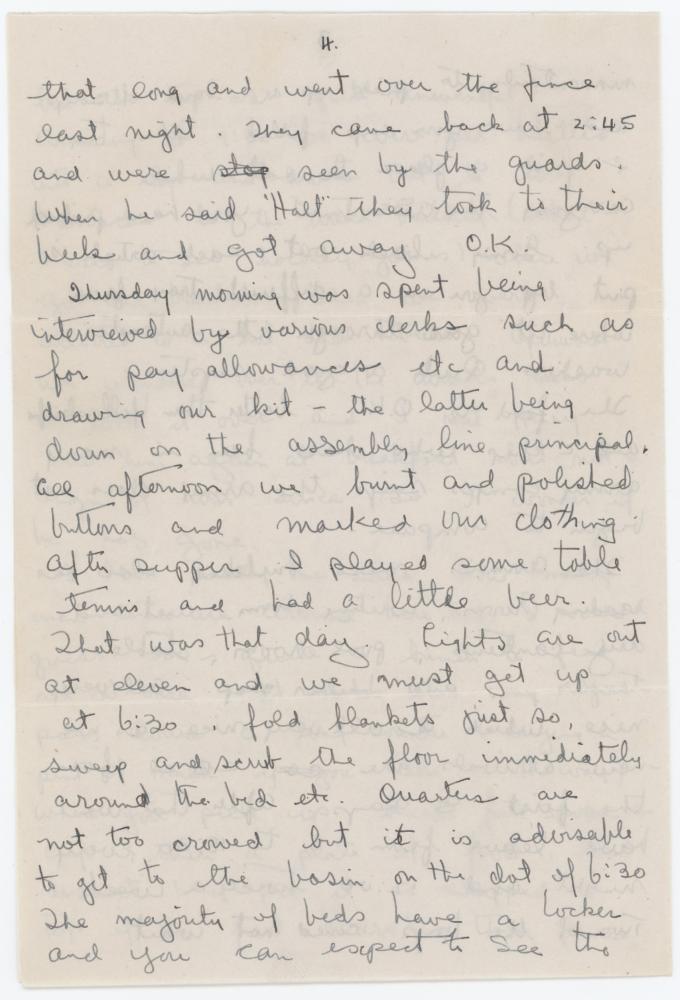 4.
that long and went over the fence
last night. They came back at 2:45
and were stop seen by the guards.
When he said "Halt" they took to their
heels and got away O.K.
Thursday morning was spent being
interveiwed by various clerks such as
for pay allowances etc and
drawing our kit - the latter being
down on the assembly line principal.
All afternoon we burnt and polished
buttons and marked our clothing.
After supper I played some table
tennis and had a little beer.
That was that day. Lights are out
at eleven and we must get up
at 6:30, fold blankets just so,
sweep and scrub the floor immediately
around the bed etc. Quarters are
not too crowed but it is advisable
to get to the basin on the dot of 6:30
The majority of beds have a locker
and you can expect to see the